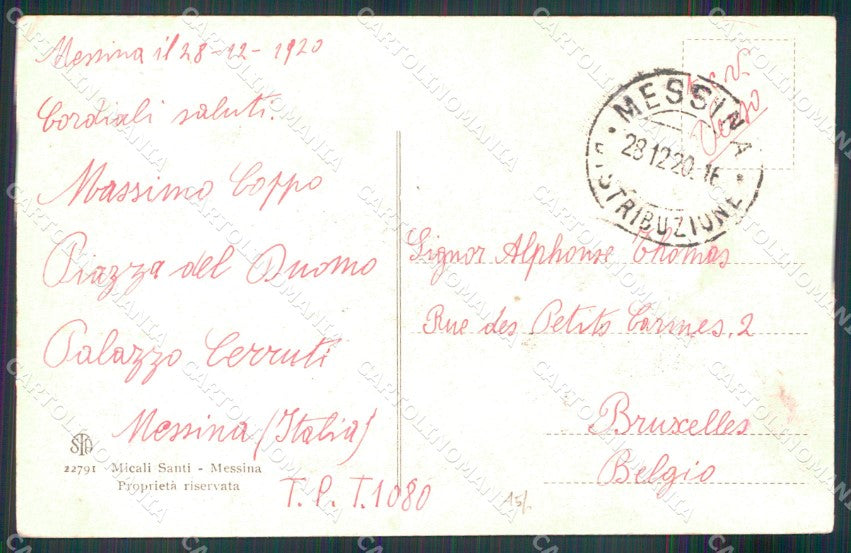 Messina il 28-12-1920
Cordiali saluti.
Massimo Coppo
Piazza del Duomo
Palazzo Cerruti
Messina (Italia)
T.P.T. 1080
22791 Micali Santi - Messina
Proprietà riservata
MESSINA
28 12 20. 16
DISTRIBUZIONE
Signor Alphonse Thomas
Rue des Petits Carmes, 2
Bruxelles
Belgio
CARTOLINOMANIA